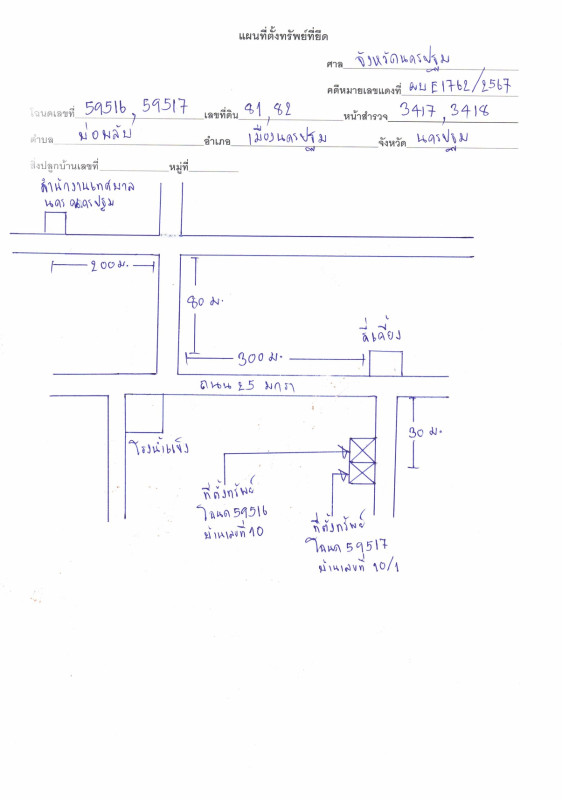 แผนที่ตั้งทรัพย์ที่ยึด
ศาล จังหวัดนครปฐม
คดีหมายเลขแดงที่ ผบ E1762/2567
โฉนดเลขที่ 59516, 59517 เลขที่ดิน 81, 82 หน้าสำรวจ 3417, 3418
ตำบล บ่อพลับ อำเภอ เมืองนครปฐม จังหวัด นครปฐม
สิ่งปลูกบ้านเลขที่ หมู่ที่
สำนักงานเทศบาล
นครนครปฐม
200 ม.
80 ม.
ตี๋เคี้ยง
300 ม.
ถนน 25 มกรา
30 ม.
โรงน้ำแข็ง
ที่ตั้งทรัพย์
โฉนด 59516
บ้านเลขที่ 10
ที่ตั้งทรัพย์
โฉนด 59517
บ้านเลขที่ 10/1